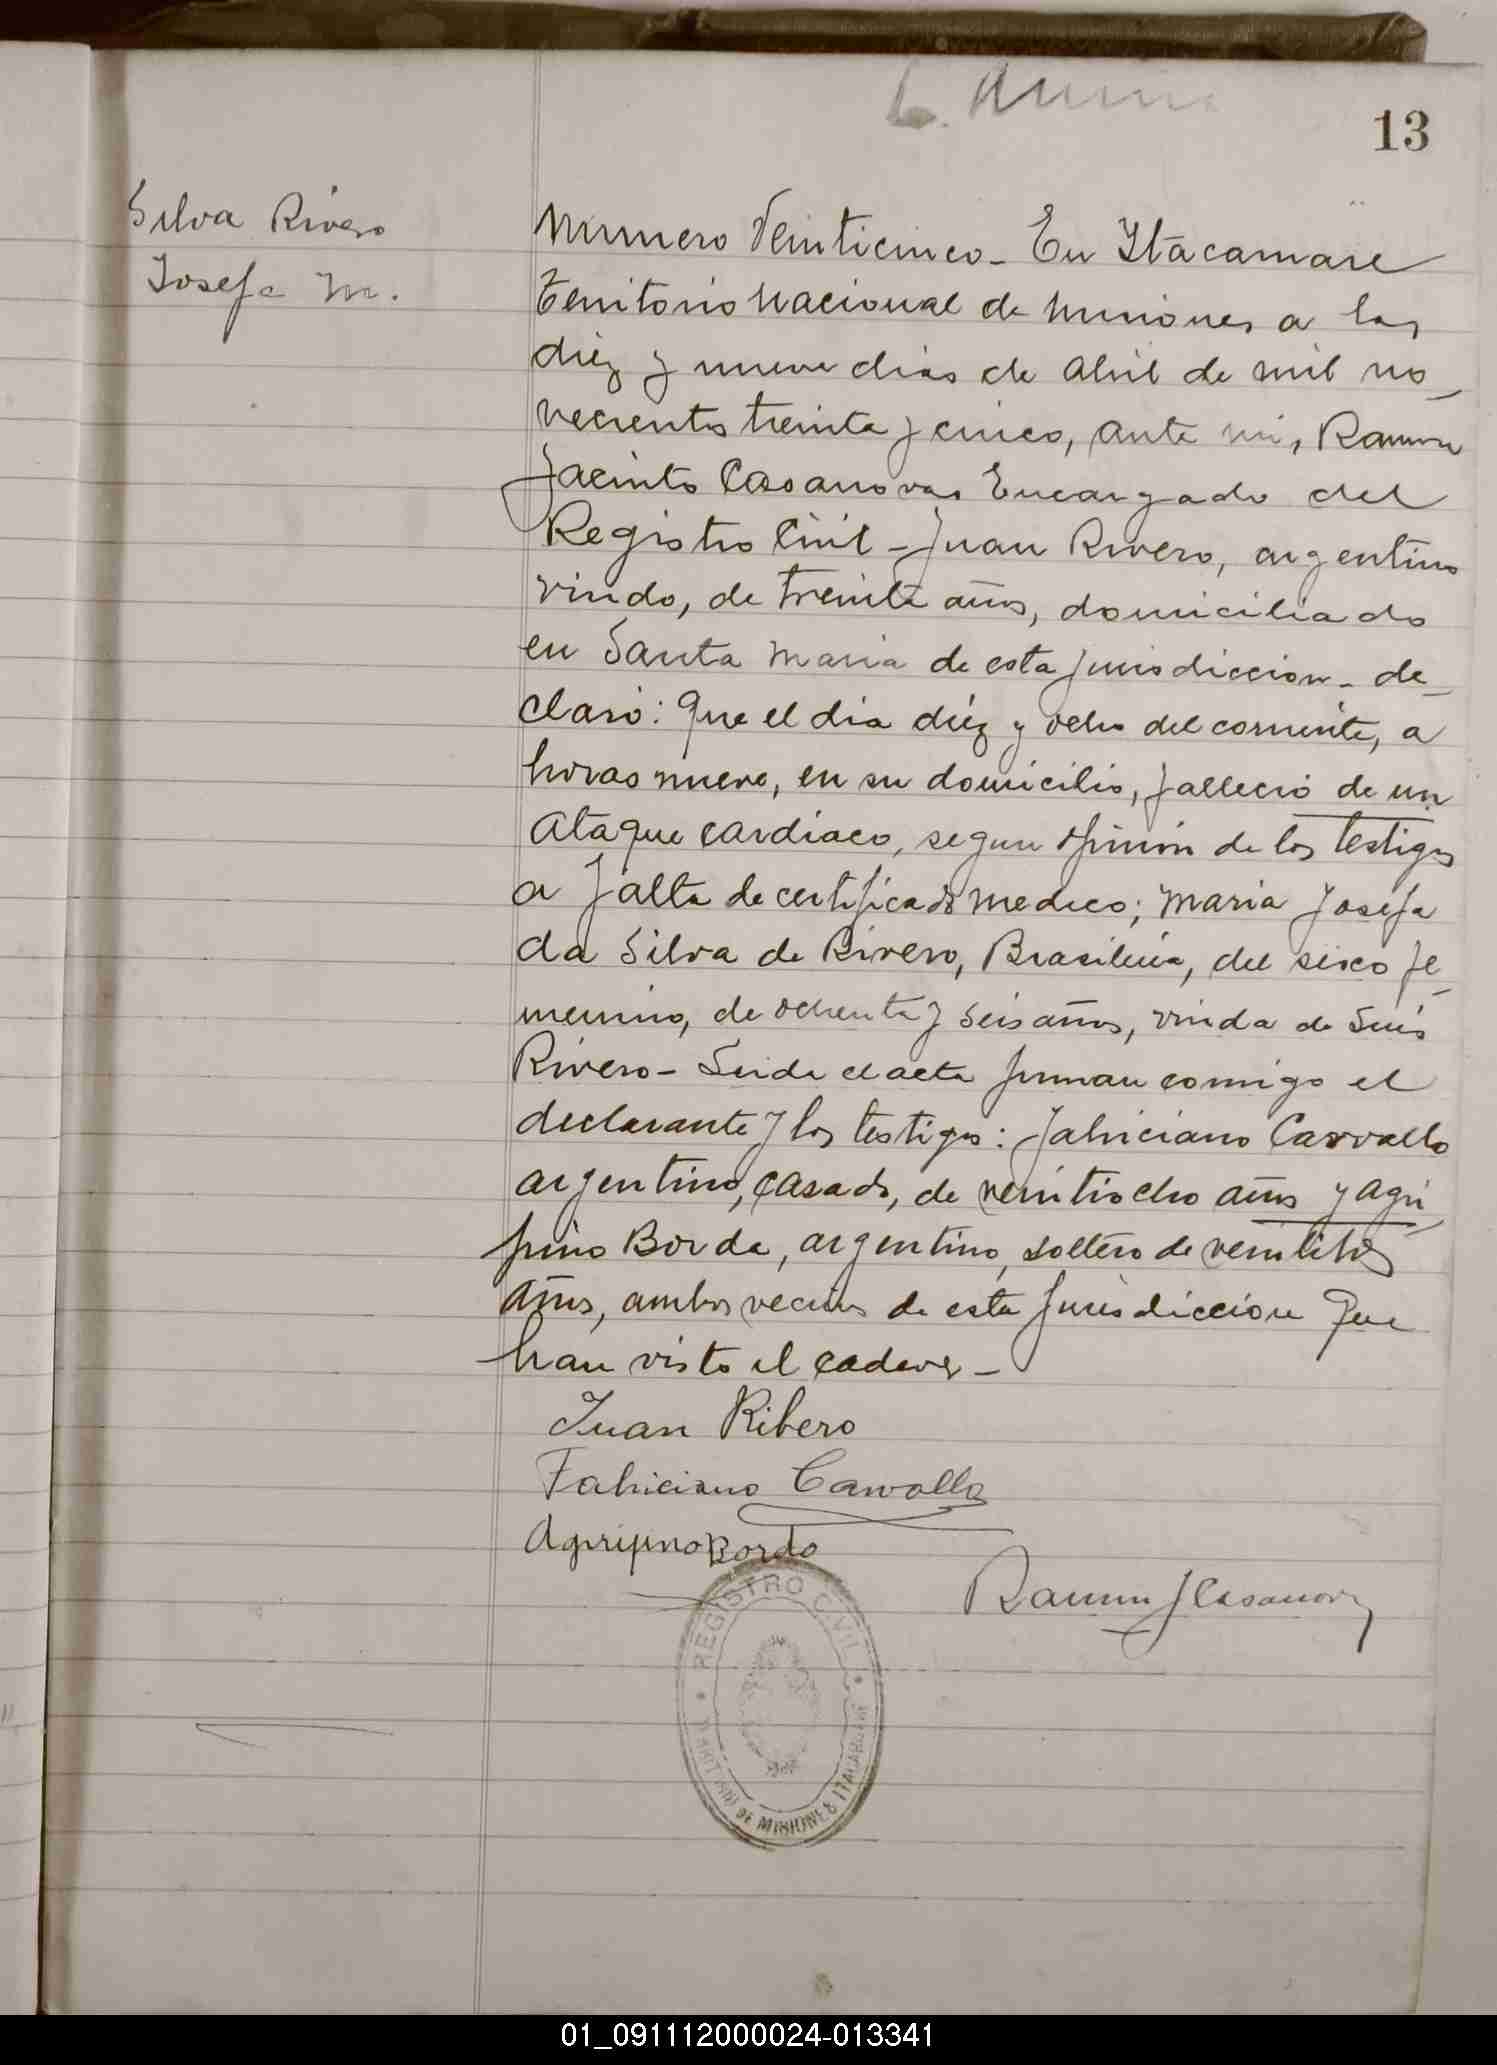 13
Silva Rivero
Josefa M.
Numero Veinticinco - En Itacaruare
Territorio Nacional de Misiones a los
diez y nueve dias de Abril de mil no-
vecientos treinta y cinco, ante mi, Ramon
Jacinto Casanovas Encargado del
Registro Civil - Juan Rivero, argentino
viudo, de treinta años, domiciliado
en Santa Maria de esta jurisdiccion - de-
claró: Que el dia diez y ocho del corriente, a
horas nueve, en su domicilio, falleció de un
Ataque cardiaco, segun opinión de los testigos
a falta de certificado medico; Maria Josefa
da Silva de Rivero, Brasileña, del sexo fe-
menino, de ochenta y seis años, viuda de Luis
Rivero - Leida el acta firman comigo el
declarante y los testigos: Fabriciano Carvallo
argentino, casado, de veintiocho años y Agri-
pino Borda, argentino, soltero de veintitres
Años, ambos vecinos de esta jurisdiccion que
han visto el cadaver -
Juan Ribero
Fabriciano Carvallo
Agripino Bordo
Ramon J Casanovas
REGISTRO CIVIL
TERRITORIO DE MISIONES ITACARUARE
01_091112000024-013341